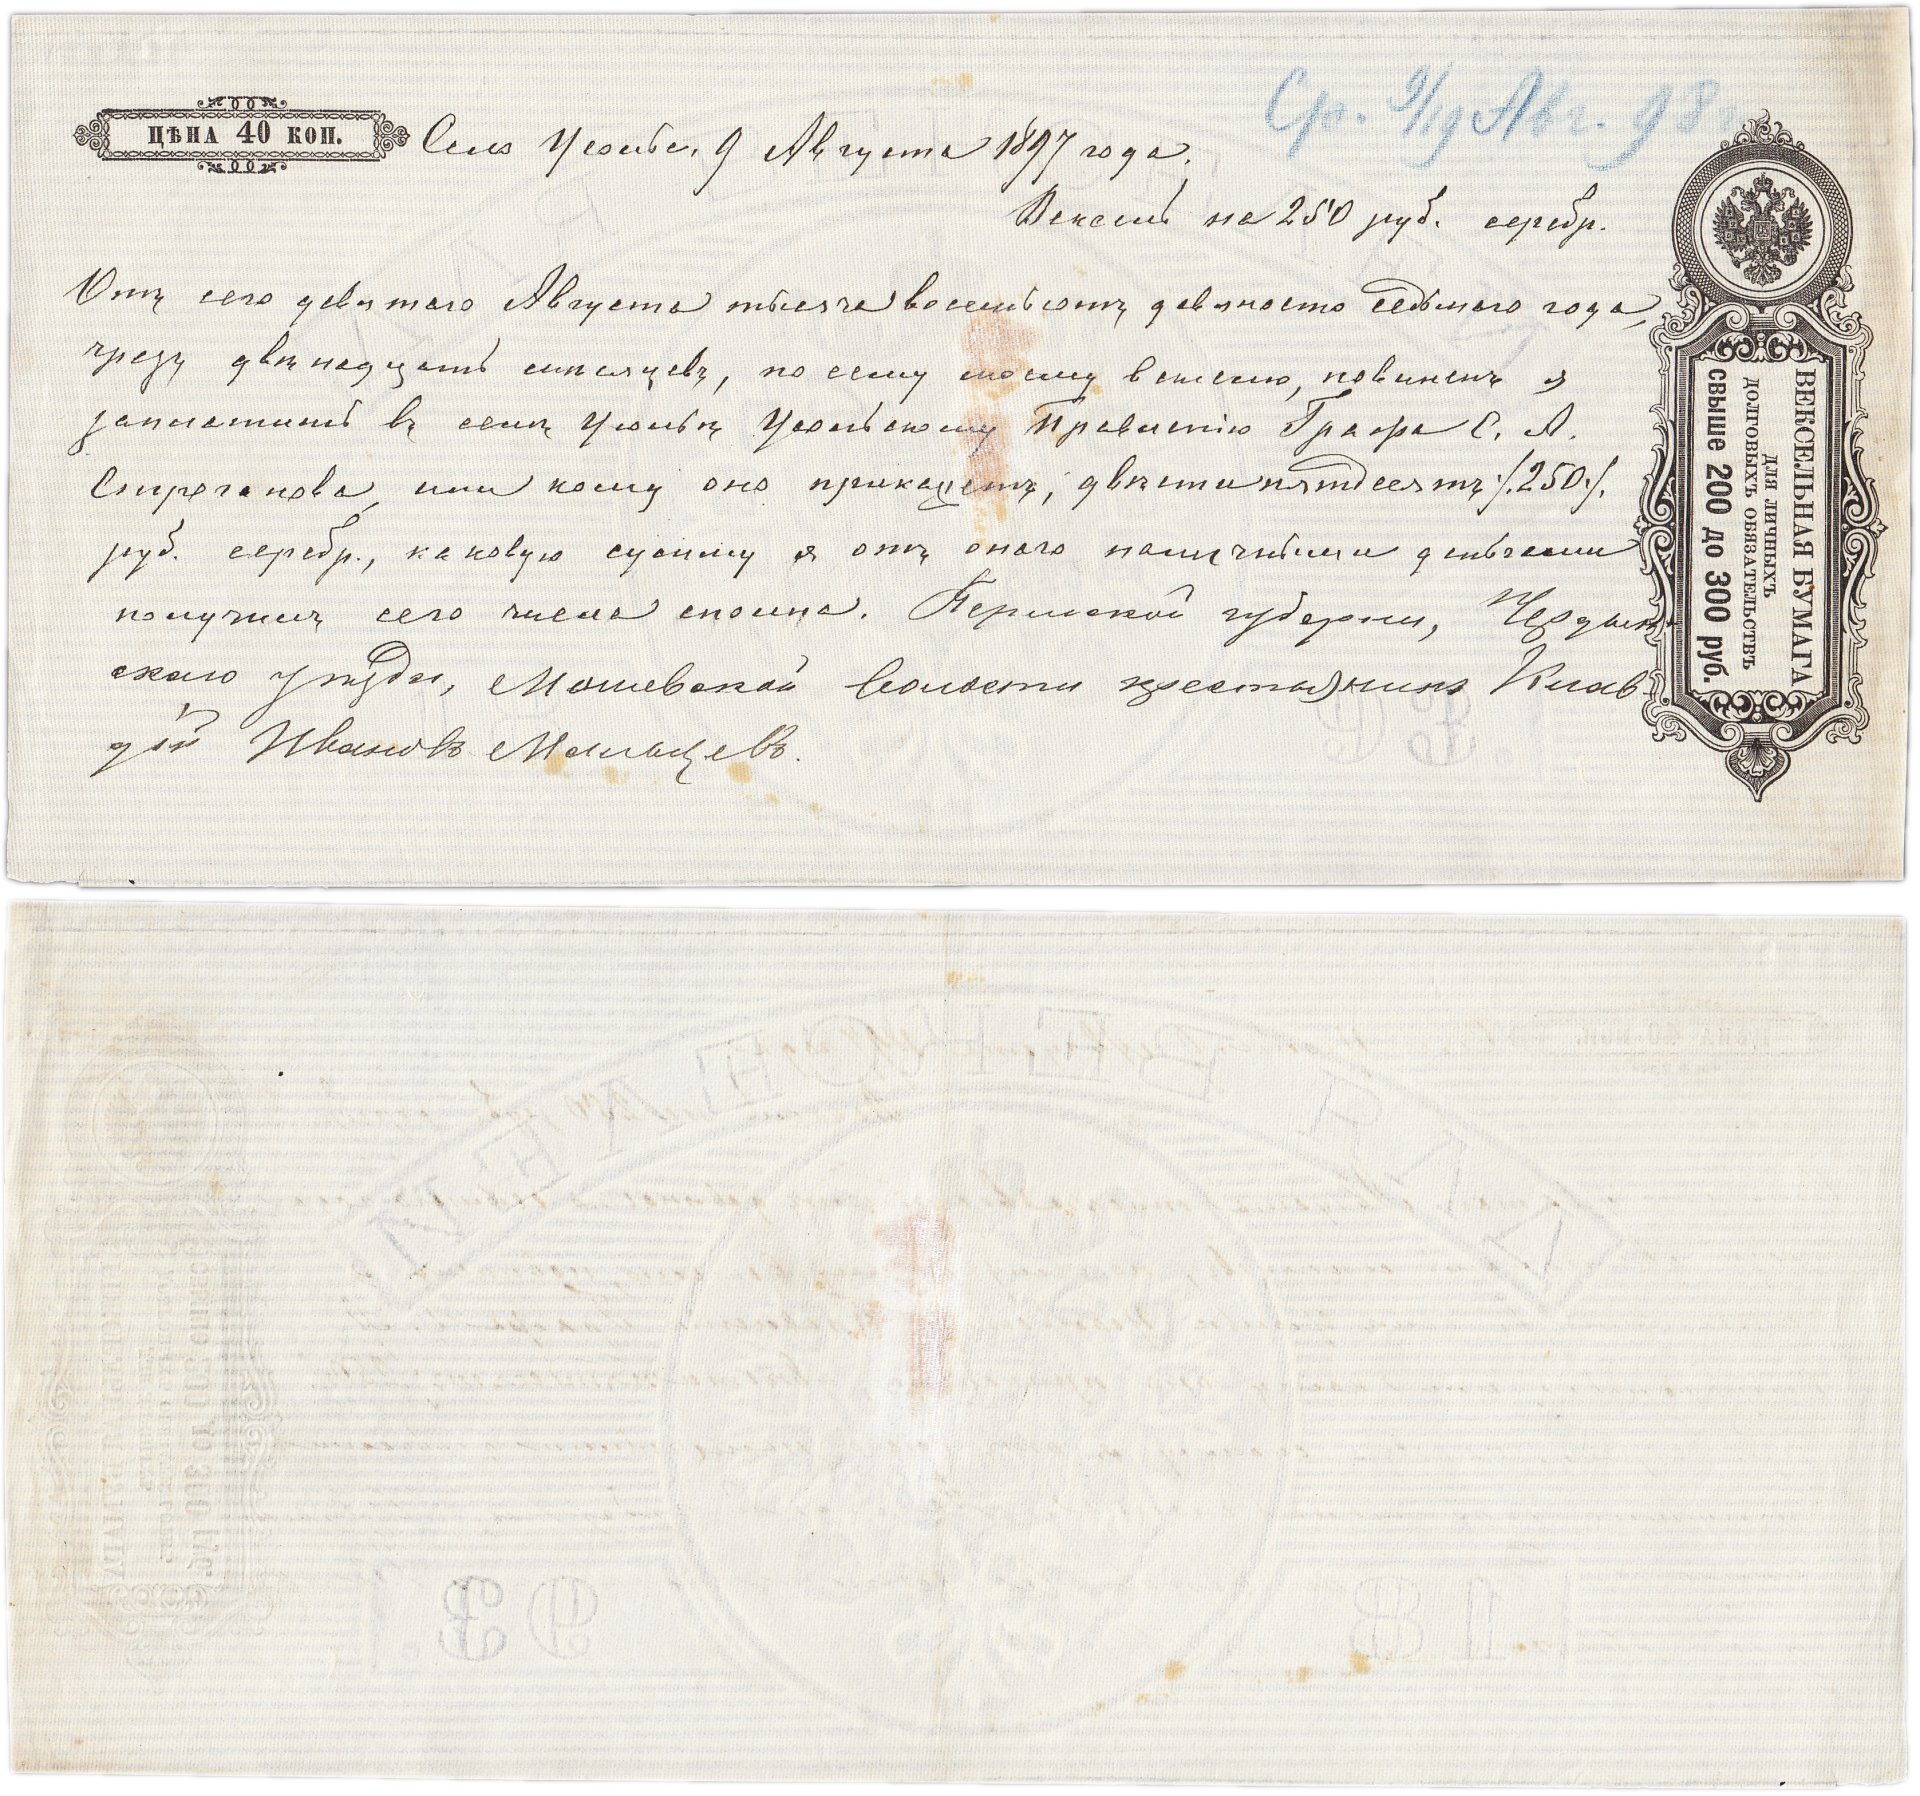 ЦѢНА 40 КОП.
Ср. 9/19 Авг. 98 г.
Село Усолье, 9 Августа 1897 года.
Вексель на 250 руб. серебр.
Отъ сего девятаго Августа тысяча восемьсотъ девяносто седьмого года,
чрезъ двѣнадцать мѣсяцевъ, по сему моему векселю, повиненъ я
заплатить въ селѣ Усольѣ Усольскому Правленію Графа С. А.
Строганова, или кому оно прикажетъ, двѣсти пятдесятъ /.250./.
руб. серебр., каковую сумму я отъ онаго наличными деньгами
получилъ сего числа сполна. Пермской губерніи, Чердын-
скаго уѣзда, Мошевской волости крестьянинъ Клав-
дій Ивановъ Мальцевъ.
ВЕКСЕЛЬНАЯ БУМАГА
ДЛЯ ЛИЧНЫХЪ
ДОЛГОВЫХЪ ОБЯЗАТЕЛЬСТВЪ
свыше 200 до 300 руб.